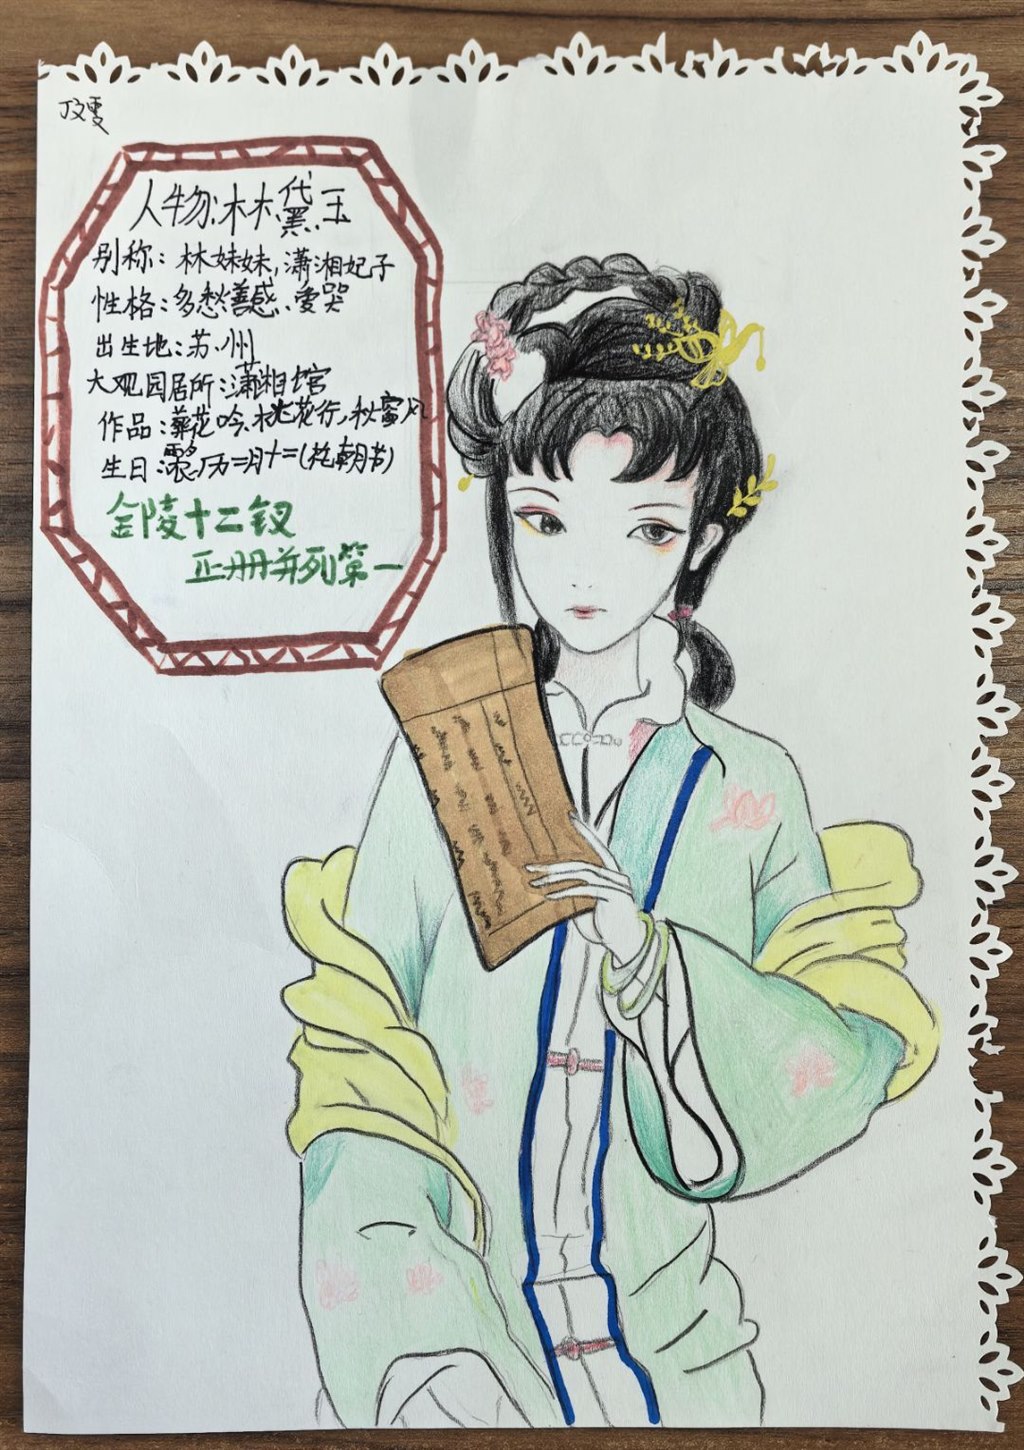 丁文雯
人物:林黛玉
别称:林妹妹,潇湘妃子
性格:多愁善感、爱哭
出生地:苏州
大观园居所:潇湘馆
作品:葬花吟、桃花行,秋窗风
生日:农历二月十二(花朝节)
金陵十二钗
正册并列第一